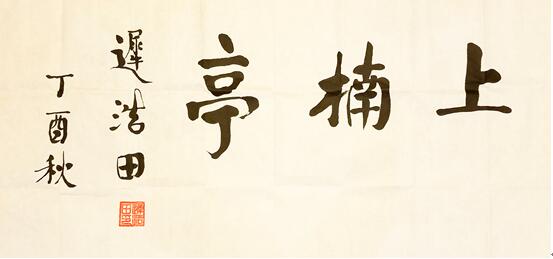 上楠亭
遲浩田
丁酉秋